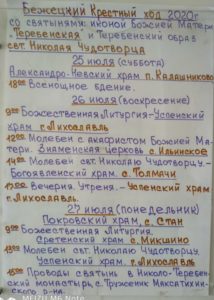 Бежецкий Крестный ход 2020г.
со святынями: иконой Божией Матери-
-Теребенская и Теребенский образ
свт. Николая Чудотворца
25 июля (суббота)
Александро-Невский храм п. Калашниково
18:00 Всенощное бдение.
26 июля (воскресение)
9:00 Божественная Литургия-Успенский
храм г. Лихославль
12:00 Молебен с акафистом Божией Ма-
тери. Знаменская церковь с. Ильинское
14:00 Молебен свт. Николаю Чудотворцу.-
Богоявленский храм с. Толмачи
17:00 Вечерня. Утреня. - Успенский храм
г. Лихославль.
27 июля (понедельник)
Покровский храм с. Стан
9:00 Божественная Литургия.
Сретенский храм с. Микшино
Молебен свт. Николаю Чудотворцу
Успенский храм г. Лихославль
Проводы святынь в Николо-Теребен-
ский монастырь, с. Труженик Максатихин-
ского р-на.
MEIZU M6 Note